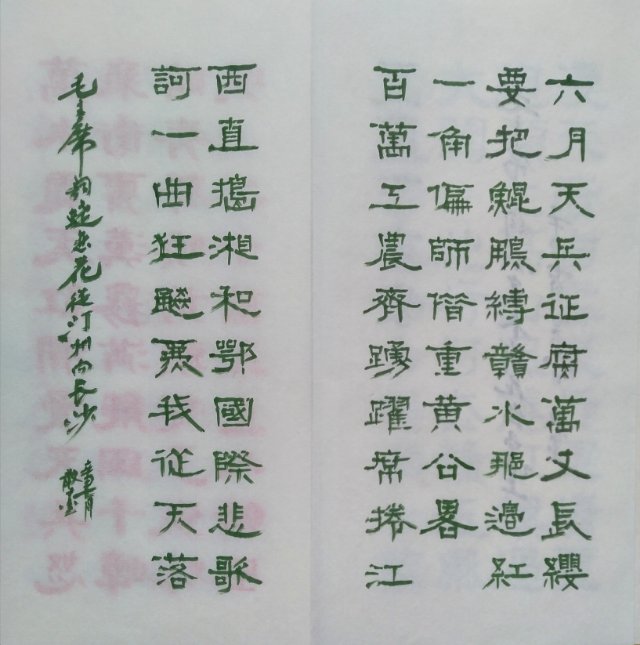 六月天兵征腐萬丈長纓
要把鯤鵬縛贛水那邊紅
一角偏師借重黄公畧
百萬工農齊踴躍席捲江
西直搗湘和鄂國際悲歌
訶一曲狂飈爲我從天落
毛主席詞蝶恋花從汀州向長沙